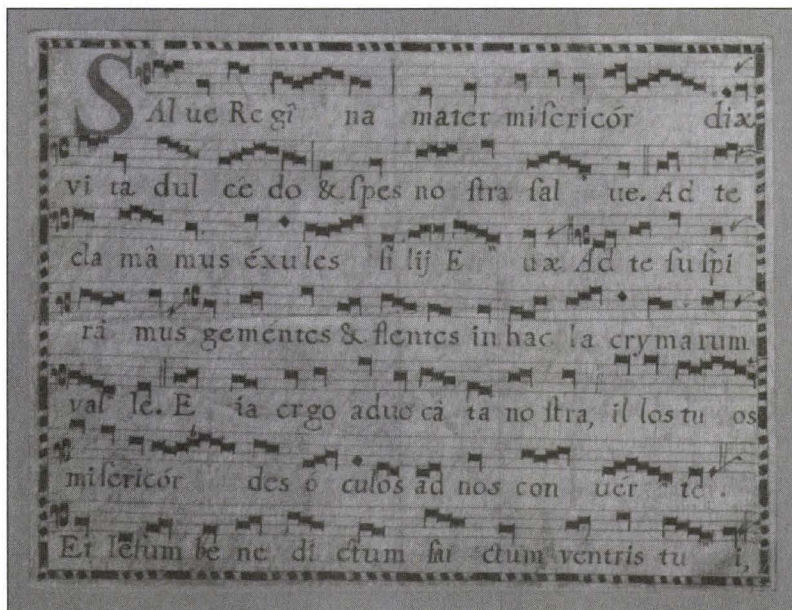 SAl ue Re gî na mater miſericór diæ
vi ta dul cé do & ſpes no ſtra ſal ue. Ad te
cla mâ mus éxules fi lij E uæ Ad te ſu ſpi
rá mus geméntes & flentes in hac la crymarum
val le. E ia ergo aduo cá ta no ſtra, il los tu os
miſericór des ó culos ad nos con uér te.
Et Ieſum be ne di ctum fru ctum ventris tu i,